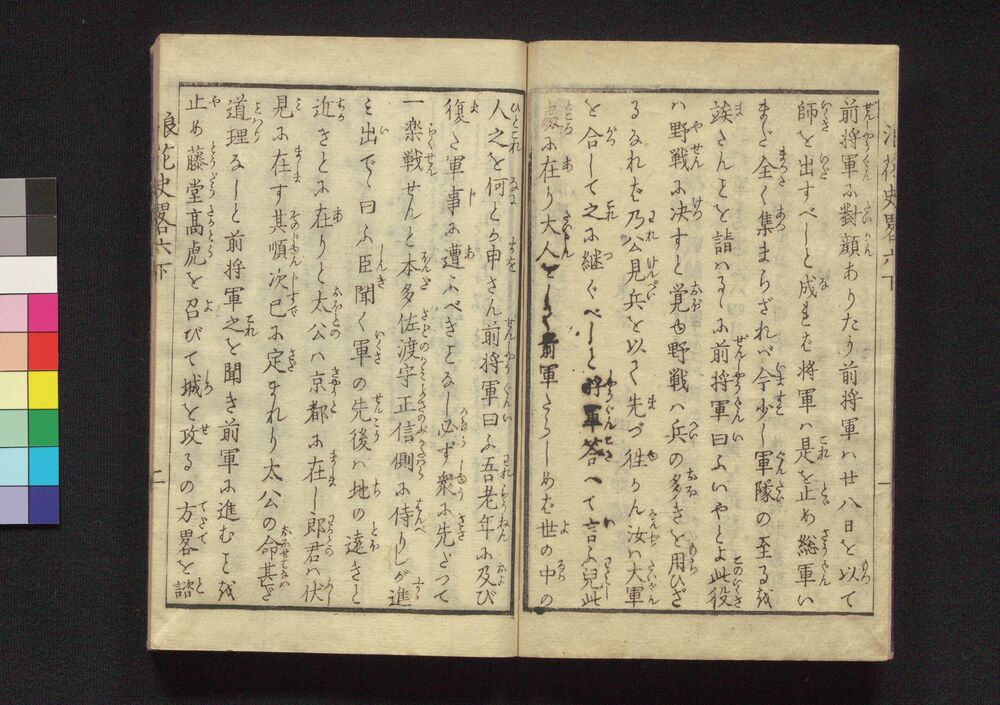 前将軍に對顔ありたり前将軍は廿八日を以て
師を出すべしと成れば将軍は是を止め総軍い
まだ全く集まらざれば今少し軍隊の至るを
竢さんことを請はるに前将軍曰ふいやとよ此役
は野戦に决すと覚ゆ野戦は兵の多きを用ひざ
るなれば乃公見兵を以て先づ徃かん汝は大軍
を合して之に継ぐべしと将軍荅へて言ふ兒此
處に在り大人をして前軍たらしめば世の中の
浪花史畧六下
一
人之を何とか申さん前将軍曰ふ吾老年に及び
復た軍事に遭ふべきことなし必ず衆に先だつて
一楽戦せんと本多佐渡守正信側に侍りしが進
み出でゝ曰ふ臣聞く軍の先後は地の遠きと
近きとに在りと太公は京都に在し郎君は伏
見に在す其順次已に定まれり太公の命甚だ
道理なしと前将軍之を聞き前軍に進むことを
止め藤堂高虎を召びて城を攻るの方畧を諮
浪花史畧六下
二